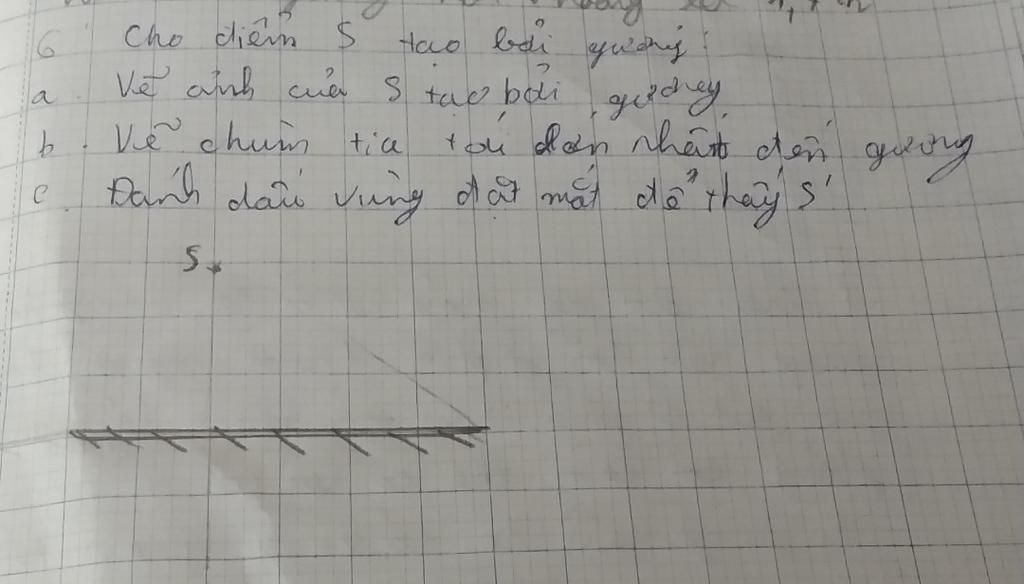 6 Cho điểm S tạo bởi gương:
a. Vẽ ảnh của S tạo bởi gương
b. Vẽ chùm tia tới nhất đến gương
c. Đánh dấu vùng đặt mắt để thấy S'
S